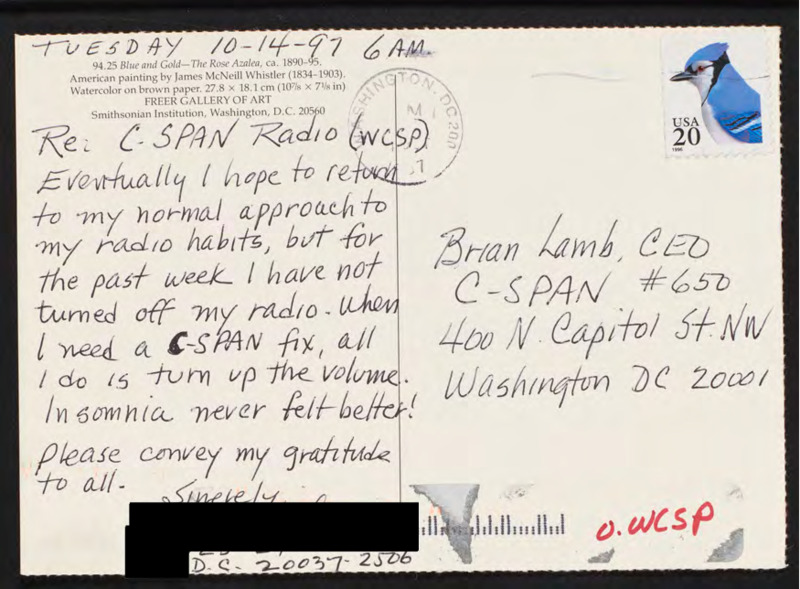 TUESDAY 10-14-97 6 AM
94.25 Blue and Gold—The Rose Azalea, ca. 1890-95.
American painting by James McNeill Whistler (1834-1903).
Watercolor on brown paper. 27.8 x 18.1 cm (10⅞ x 7⅛ in)
FREER GALLERY OF ART
Smithsonian Institution, Washington, D.C. 20560
Re: C-SPAN Radio (WCSP)
Eventually I hope to return
to my normal approach to
my radio habits, but for
the past week I have not
turned off my radio. When
I need a C-SPAN fix, all
I do is turn up the volume.
Insomnia never felt better!
Please convey my gratitude
to all.
Sincerely,
D.C. 20037-2506
WASHINGTON, DC 200
USA
20
1996
Brian Lamb, CEO
C-SPAN #650
400 N. Capitol St. NW
Washington DC 20001
O. WCSP